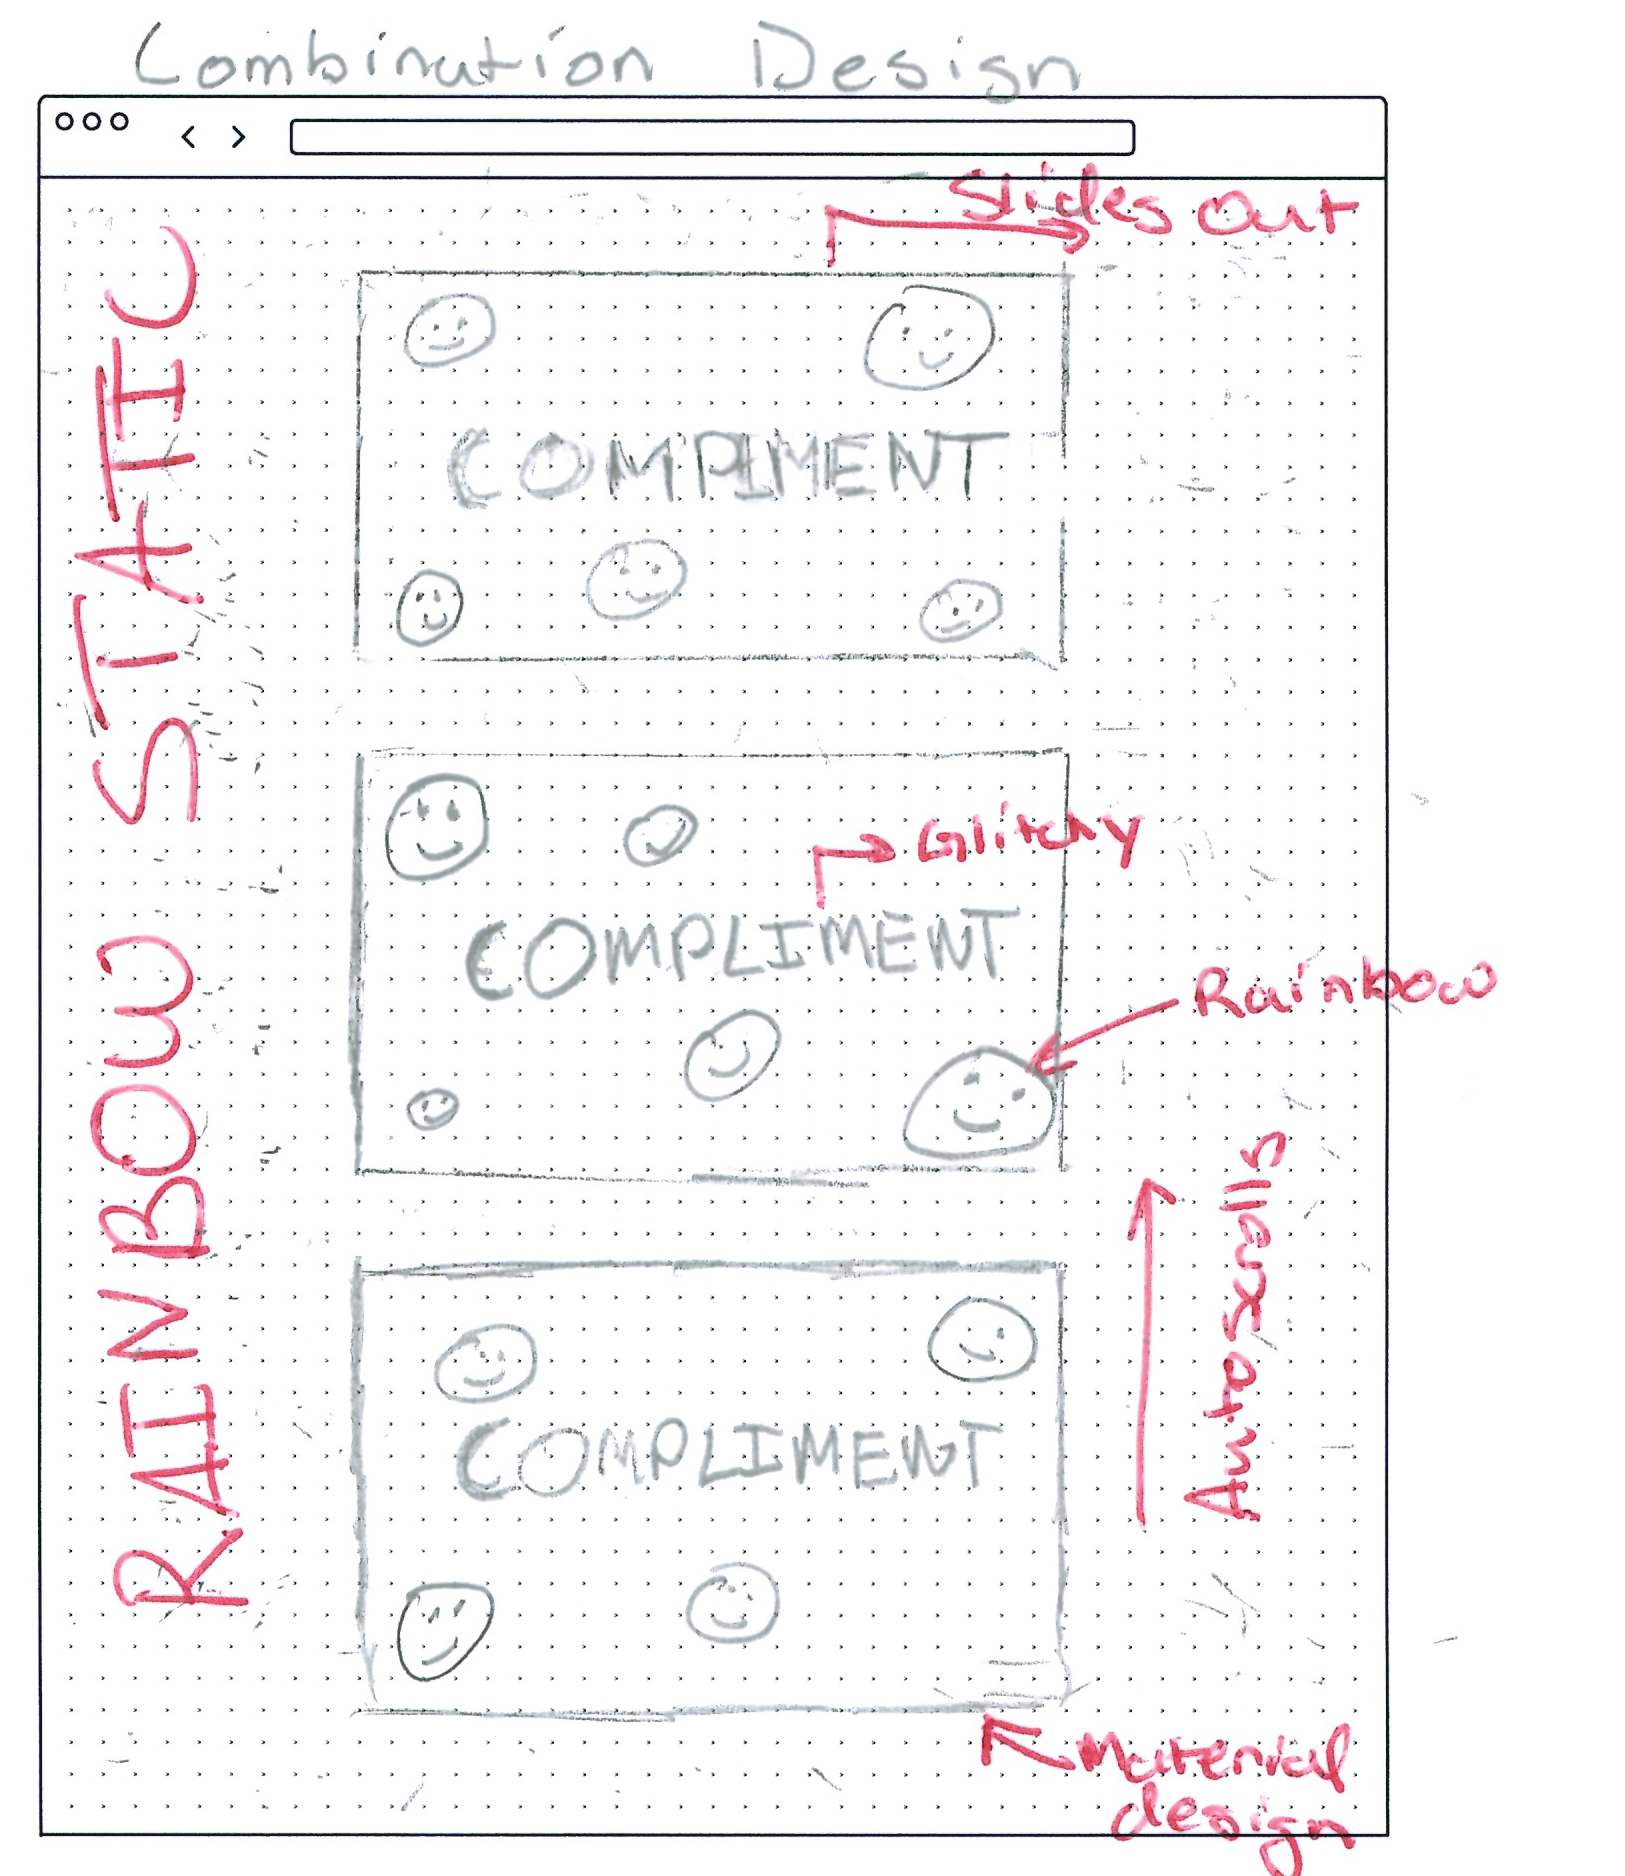 Combination Design
Slides Out
RAINBOW STATIC
COMPIMENT
Glitchy
COMPLIMENT
Rainbow
Autoscrolls
COMPLIMENT
Material
design